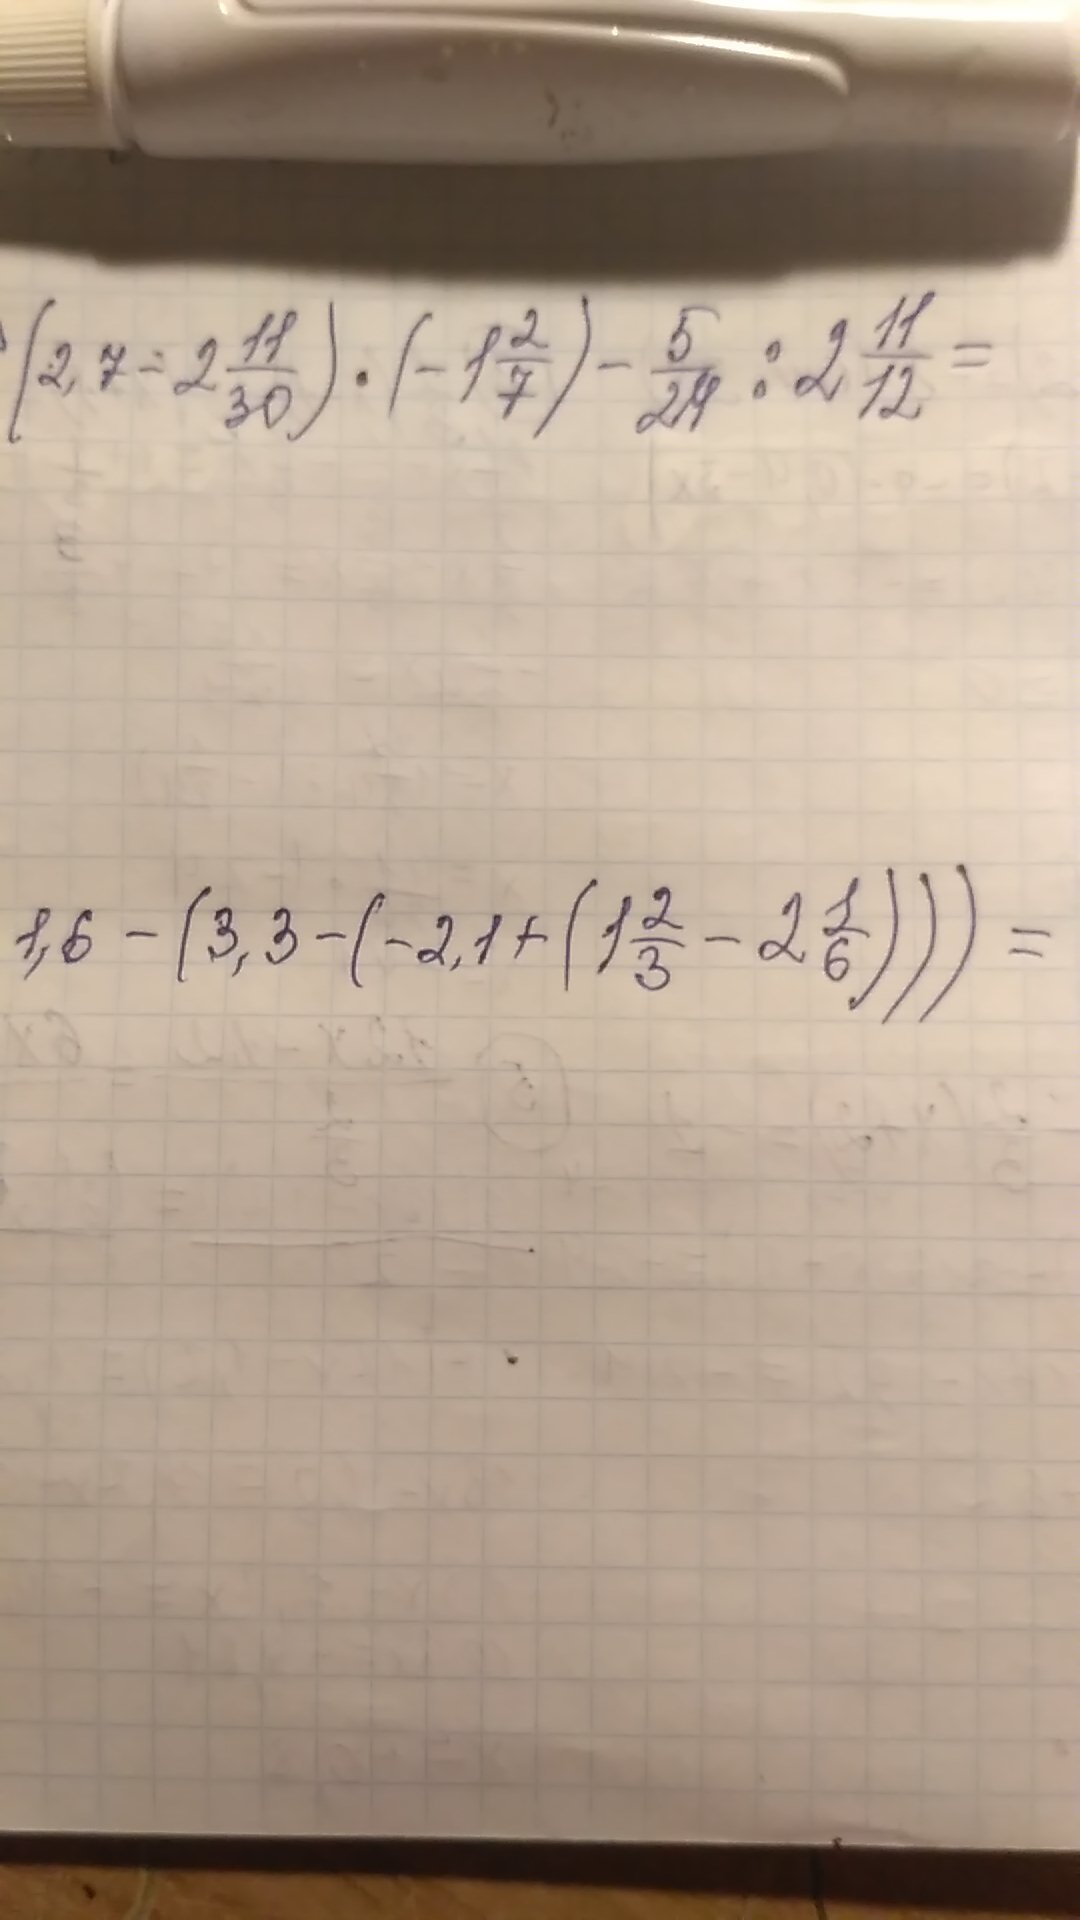 (2,7 - 2 11/30) · (-1 2/7) - 5/24 : 2 11/12 =
1,6 - (3,3 - (-2,1 + (1 2/3 - 2 1/6))) =